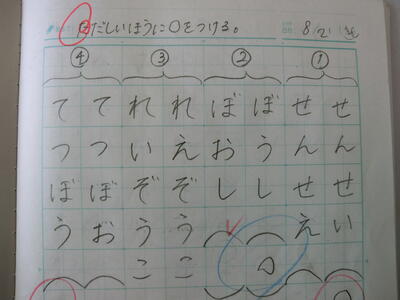 だしいほうに○をつける。
8/21
①
せんせい
せんせえ
②
ぼうし
ぼおし
③
れえぞうこ
れいぞうこ
④
てつぼお
てつぼう